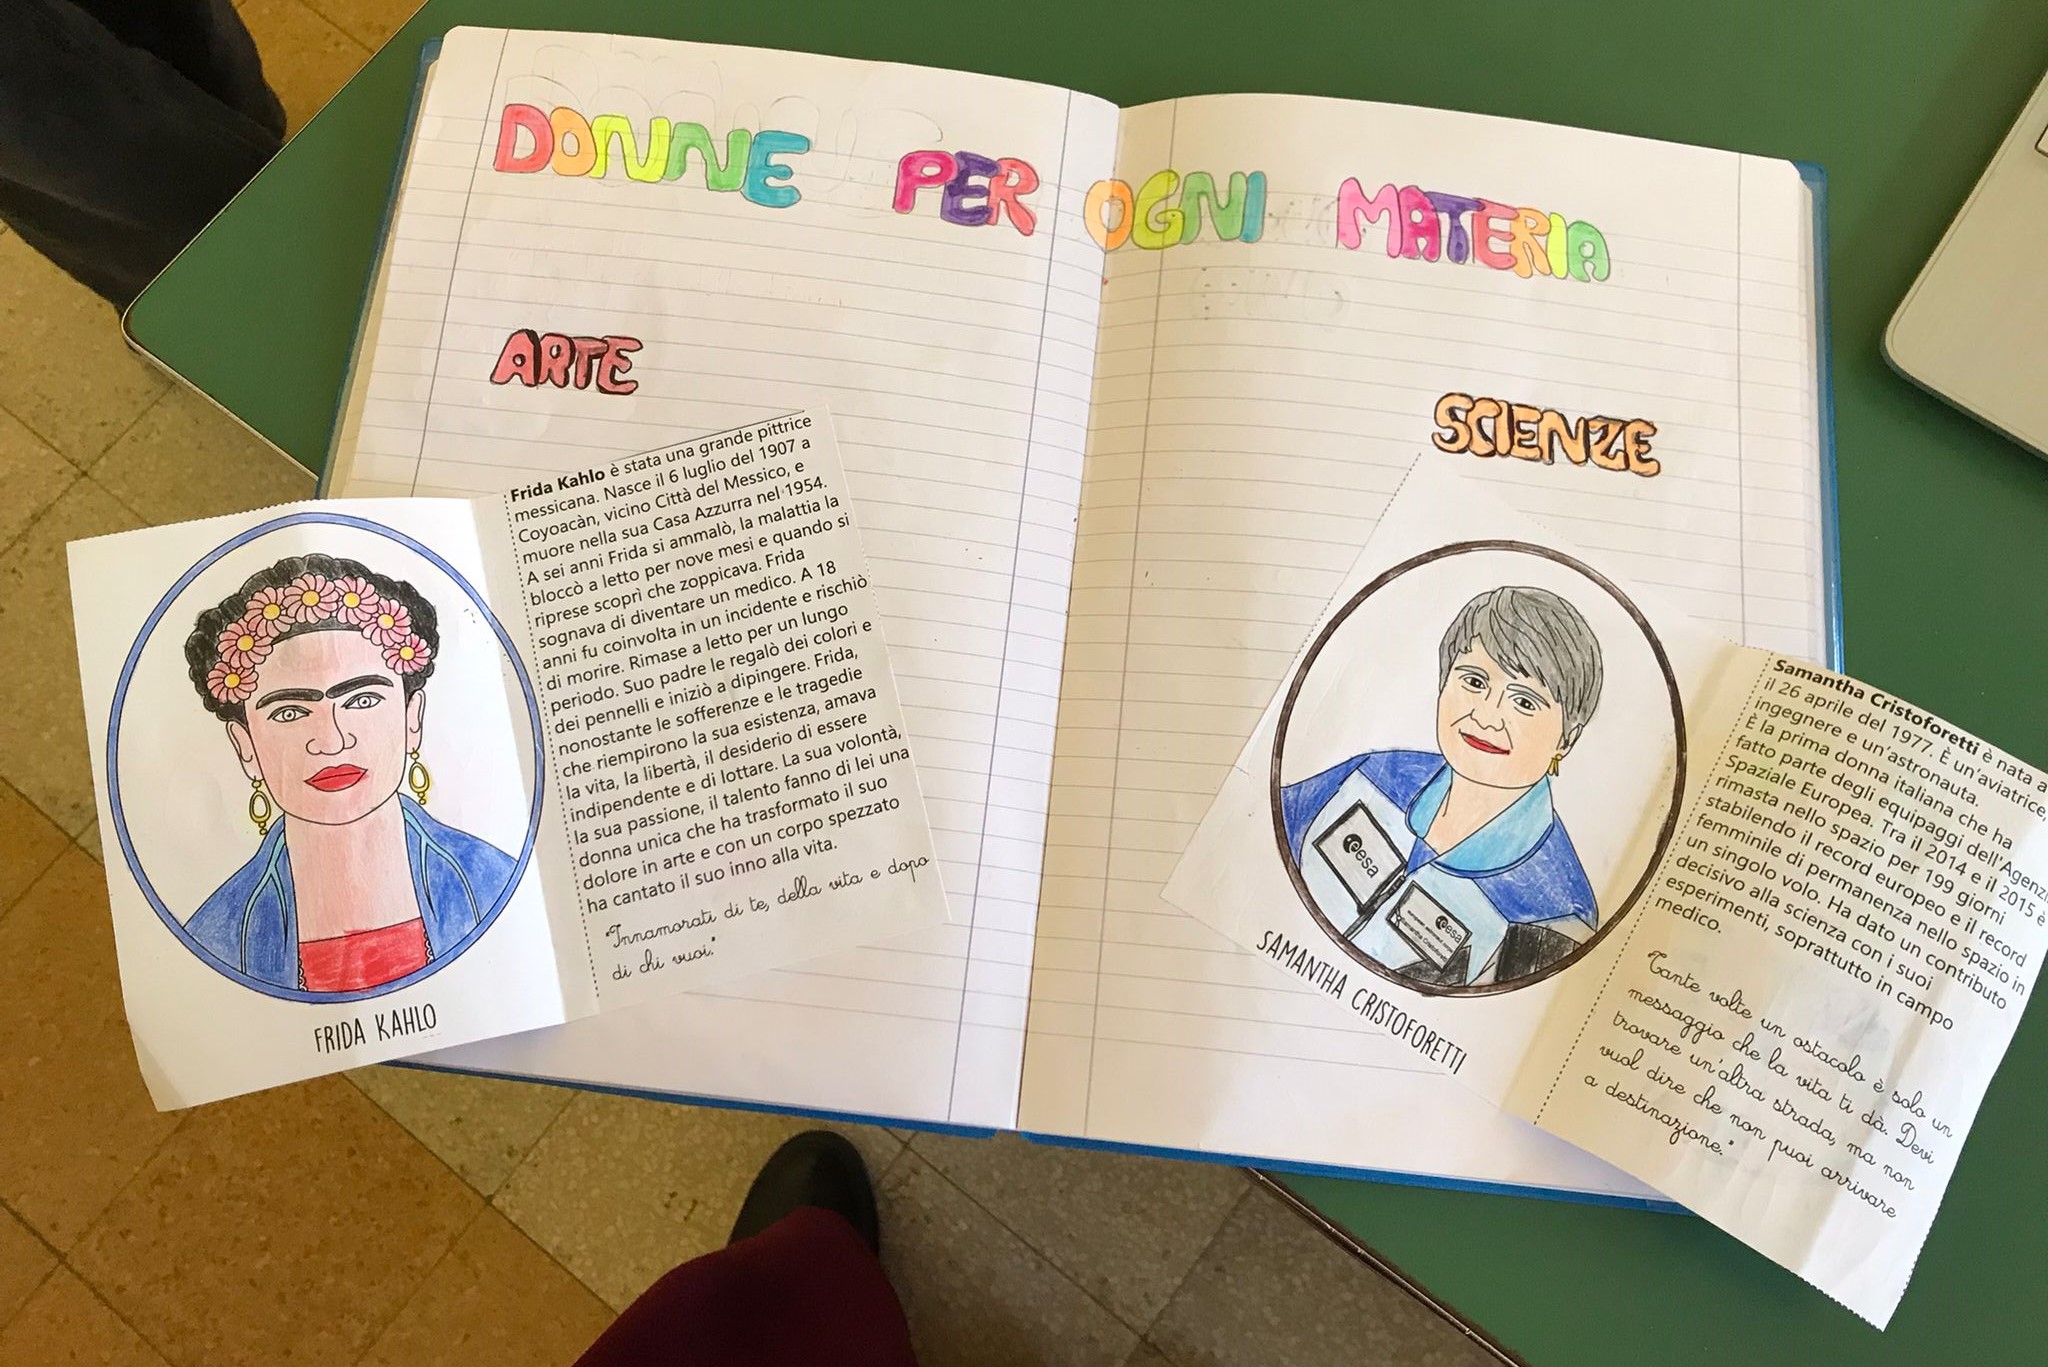 DONNE PER OGNI MATERIA
ARTE
Frida Kahlo è stata una grande pittrice
messicana. Nasce il 6 luglio del 1907 a
Coyoacàn, vicino Città del Messico, e
muore nella sua Casa Azzurra nel 1954.
A sei anni Frida si ammalò, la malattia la
bloccò a letto per nove mesi e quando si
riprese scoprì che zoppicava. Frida
sognava di diventare un medico. A 18
anni fu coinvolta in un incidente e rischiò
di morire. Rimase a letto per un lungo
periodo. Suo padre le regalò dei colori e
dei pennelli e iniziò a dipingere. Frida,
nonostante le sofferenze e le tragedie
che riempirono la sua esistenza, amava
la vita, la libertà, il desiderio di essere
indipendente e di lottare. La sua volontà,
la sua passione, il talento fanno di lei una
donna unica che ha trasformato il suo
dolore in arte e con un corpo spezzato
ha cantato il suo inno alla vita.
"Innamorati di te, della vita e dopo
di chi vuoi."
FRIDA KAHLO
SCIENZE
esa
esa
Samantha Cristoforetti
SAMANTHA CRISTOFORETTI
Samantha Cristoforetti è nata a
il 26 aprile del 1977. È un'aviatrice,
ingegnere e un'astronauta.
È la prima donna italiana che ha
fatto parte degli equipaggi dell'Agenzi
Spaziale Europea. Tra il 2014 e il 2015 è
rimasta nello spazio per 199 giorni
stabilendo il record europeo e il record
femminile di permanenza nello spazio in
un singolo volo. Ha dato un contributo
decisivo alla scienza con i suoi
esperimenti, soprattutto in campo
medico.
"Tante volte un ostacolo è solo un
messaggio che la vita ti dà. Devi
trovare un'altra strada, ma non
vuol dire che non puoi arrivare
a destinazione."